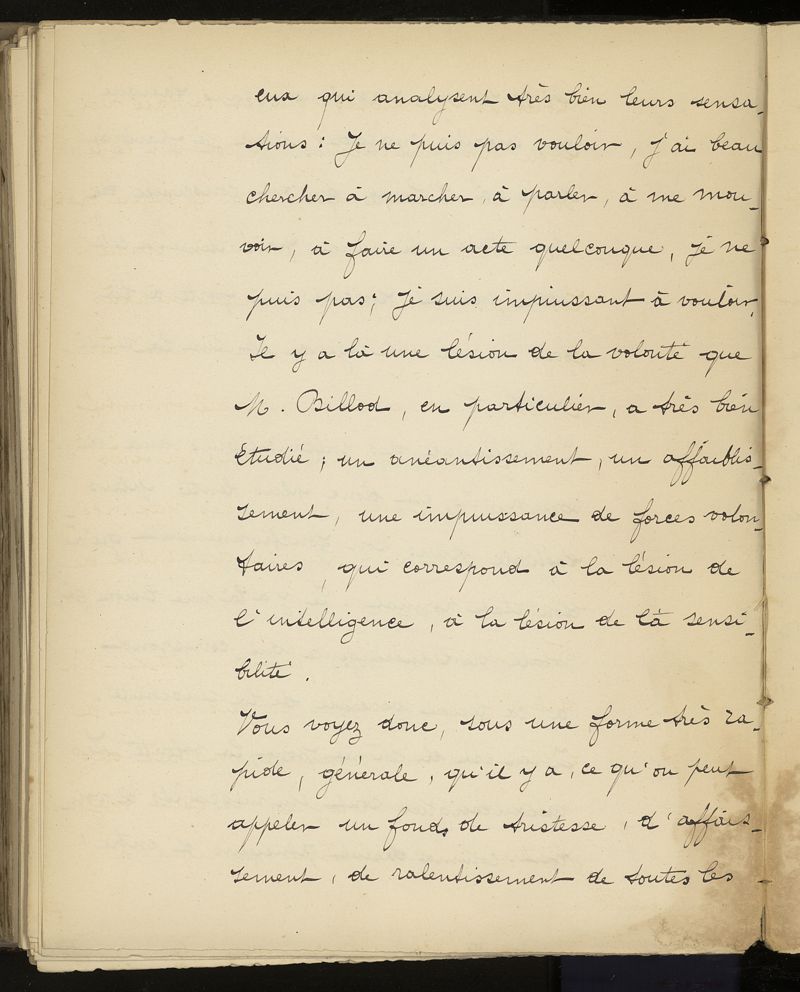 eux qui analysent très bien leurs sensa-
tions : Je ne puis pas vouloir, j'ai beau
chercher à marcher, à parler, à me mou-
voir, à faire un acte quelconque, je ne
puis pas ; Je suis impuissant à vouloir.
Il y a là une lésion de la volonté que
M. Billod, en particulier, a très bien
étudié ; un anéantissement, un affaiblis-
sement, une impuissance de forces volon-
taires, qui correspond à la lésion de
l'intelligence, à la lésion de la sensi-
bilité.
Vous voyez donc, sous une forme très ra-
pide, générale, qu'il y a, ce qu'on peut
appeler un fond, de tristesse, d'affais-
sement, de ralentissement de toutes les